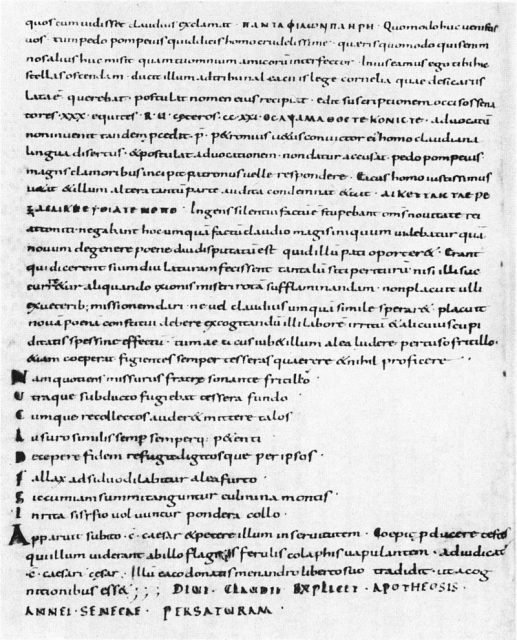 quos cum uidisset claudius exclamat · ΠΑΝΤΑ ΦΙΛΩΝ ΠΛΗΡΗ · Quomodo huc uenistis
uos · tum pedo pompeius quid dicis homo crudelissime · quaeris quomodo quis enim
nos alius huc misit quam tu omnium amicorum interfector · In ius eamus ego tibi hic
sellas ostendam · ducit illum ad tribunal eaci is lege cornelia quae de sicariis
lata e querebat · postulat nomen eius recipiat · edit suscriptionem occisos sena
tores · xxx · equites · R · ceteros · cc xxi · ΟϹΑ ΨΑΜΑΘΟϹ ΤΕ ΚΟΝΙϹ ΤΕ · aduocatu
non inuenit tandem pcedit · p · petronius uetus conuictor ei homo claudiana
lingua disertus · & postulat aduocationem · non datur accusat · pedo pompeius
magnis clamoribus incipit patronus uelle respondere · Eacus homo iustissimus
uetat & illum altera tantum parte audita condemnat & ait ·
Ingens silentium factum e stupebant oms nouitate rei
attoniti · negabant hoc umquam factu claudio magis iniquum uidebatur qua
nouum de genere poene diu disputatum est quid illum pati oporter& · Erant
qui dicerent sium diu laturam fecissent tantalu siti periturum nisi illi suc
curreretur aliquando ixionis miseri rota sufflaminandam · non placuit ulli
ex ueterib; missionem dari · ne uel claudius umquam simile sperar& placuit
noua poena constitui debere excogitandu illi labore irritu & alicuius cupi
ditatis spe sine effectu · tum aeacus iub& illum alea ludere pertuso fritillo ·
& iam coeperat fugientes semper tesseras quaerere & nihil proficere
Nam quotiens missurus erat e sonante fritillo ·
Utraque subducto fugiebat tessera fundo
Cumque recollectos auder& mittere talos
Lusuro similis semp semperq; petenti
Decepere fidem refugit digitosque per ipsos ·
Fallax adsiduo dilabitur alea furto
Sic cum iam summi tanguntur culmina montis ·
Inrita sisifio uoluuntur pondera collo ·
Apparuit subito · c · caesar & petere illum in seruitutem · Coepit pducere testes
qui illum uiderant ab illo flagris ferulis colaphis uapulantem · adiudicat
· c · caesari cesar · Illum eaco donat is menandro liberto suo tradidit · ut a cog
nitionibus ess& ; ; ; DIUI · CLAUDII EXPLICIT · APOTHEOSIS ·
ANNEI · SENECAE · PER SATURAM ·